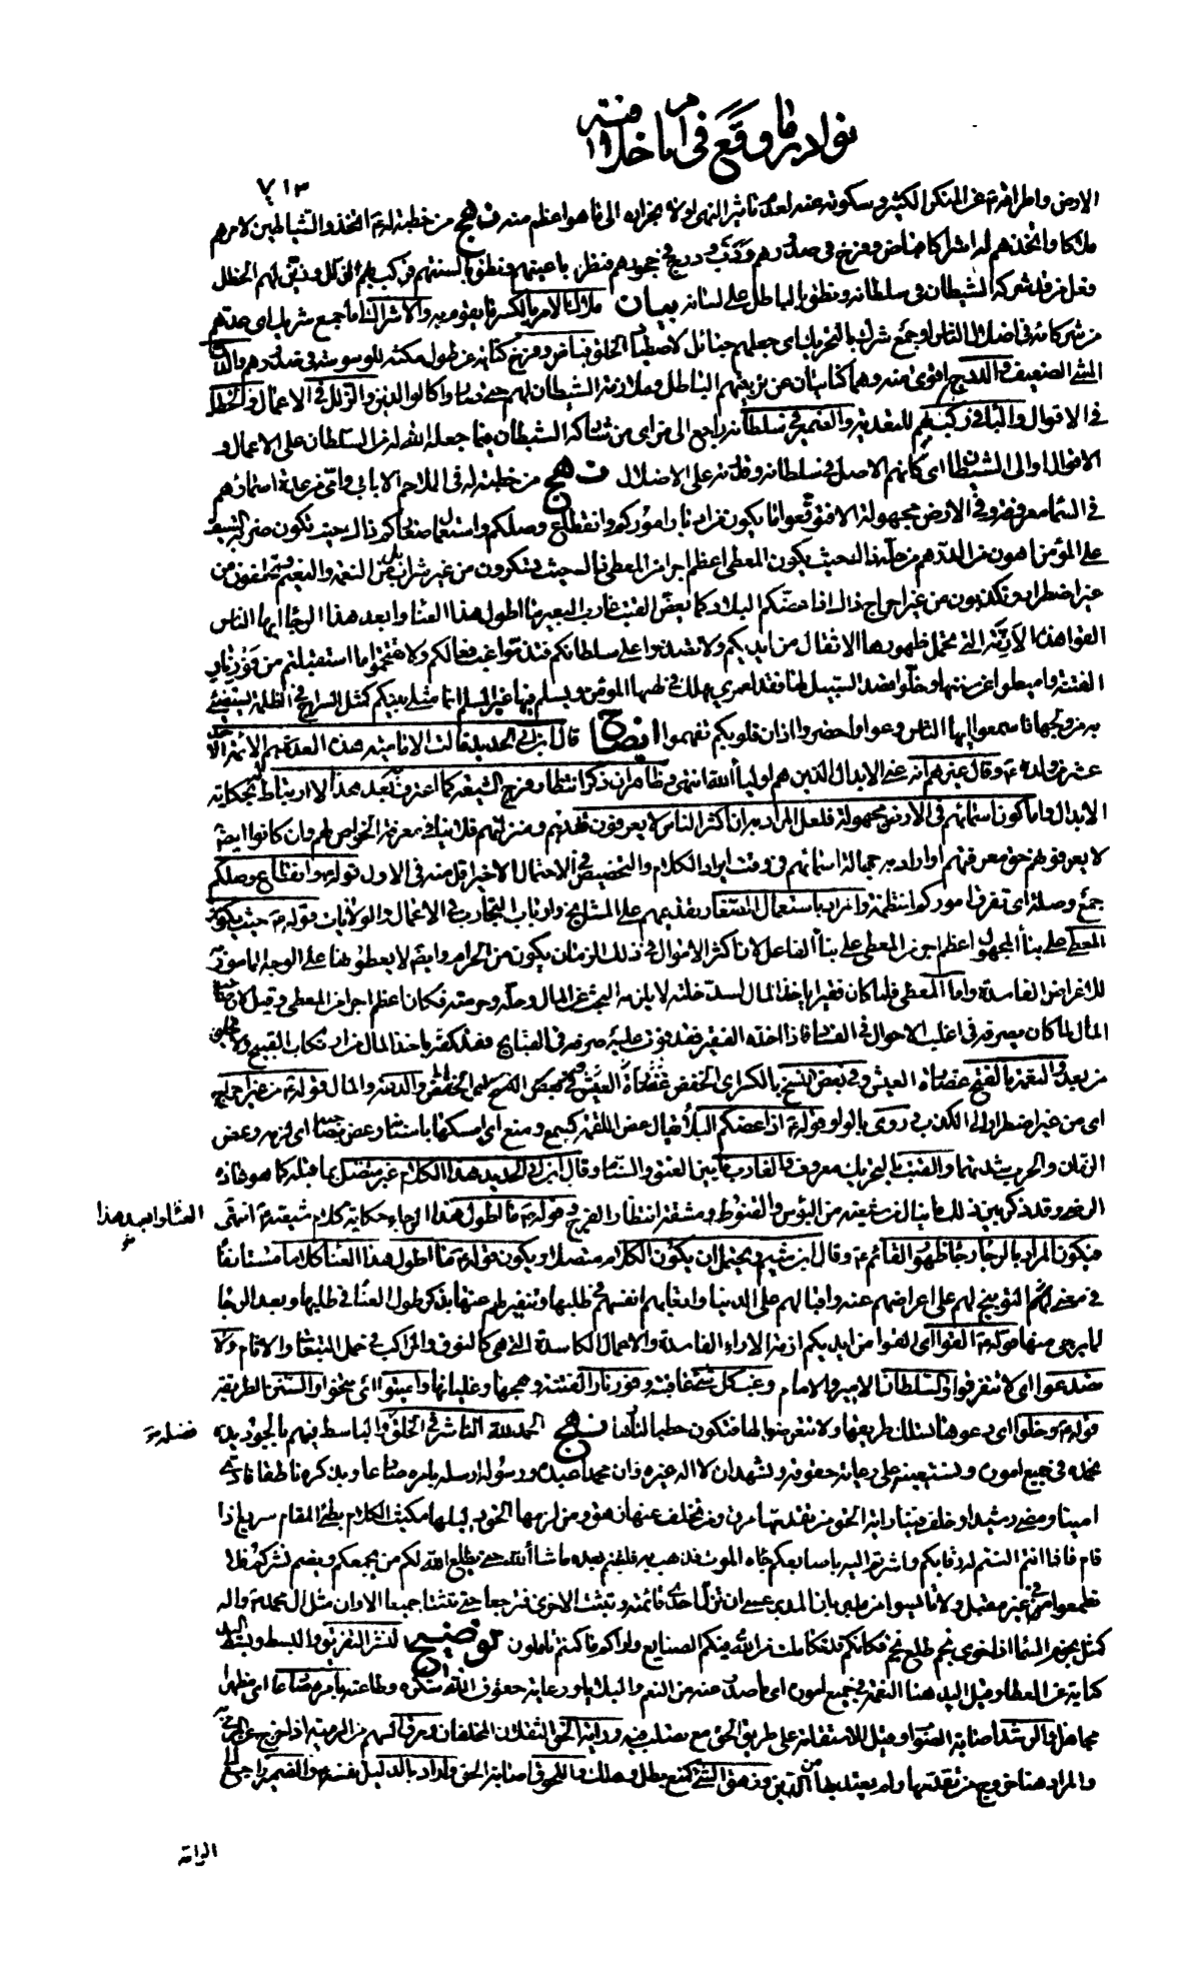 نوادر ما وقع في ايام خلافته
٧١٣
الارض واطراقهم عن المنكر الكثير وسكوته عنه لعدم تاثير النهى او لانجراره الى ما هو اعظم منه نهج من خطبة له اتخذوا الشيطان لامرهم
ملاكا واتخذهم له اشراكا فباض وفرخ في صدورهم ودب ودرج في حجورهم فنظر باعينهم ونطق بالسنتهم فركب بهم الزلل وزين لهم الخطل
فعل من قد شركه الشيطان في سلطانه ونطق بالباطل على لسانه بيان ملاك الامر بالكسر ما يقوم به والاشراك اما جمع شريك اى عدهم
من شركائه في اضلال الناس او جمع شرك بالتحريك اى جعلهم حبائل لاصطياد الخلق فباض وفرخ كناية عن طول مكثه للوسوسة في صدورهم والدب
المشى الضعيف والدرج اقوى منه وهما كنايتان عن تربيتهم الباطل وملازمة الشيطان لهم والزلل في الاعمال والخطل
في الاقوال والباء في ركب بهم للتعدية والضمير في سلطانه راجع الى من اى من شاركه الشيطان فيما جعله الله له من السلطان على الاعمال و
الاقوال او الى الشيطان اى كانهم الاصل في سلطانه وقدرته على الاضلال نهج من خطبة له في الملاحم الا بابى وامى من عدة اسماؤهم
في السماء معروفة وفي الارض مجهولة الا فتوقعوا ما يكون من ادبار اموركم وانقطاع وصلكم واستعمال صغاركم ذاك حيث تكون ضربة السيف
على المؤمن اهون من الدرهم من حله ذاك حيث يكون المعطى اعظم اجرا من المعطى ذاك حيث تسكرون من غير شراب بل من النعمة والنعيم وتحلفون من
غير اضطرار وتكذبون من غير احراج ذاك اذا عضكم البلاء كما يعض القتب غارب البعير ما اطول هذا العناء وابعد هذا الرجاء ايها الناس
القوا هذه الازمة التى تحمل ظهورها الاثقال من ايديكم ولا تصدعوا على سلطانكم فتذموا غب فعالكم ولا تقتحموا ما استقبلتم من فور نار
الفتنة واميطوا عن سننها وخلوا قصد السبيل لها فقد لعمرى يهلك في لهبها المؤمن ويسلم فيها غير المسلم انما مثلى بينكم كمثل السراج في الظلمة يستضئ
به من ولجها فاسمعوا ايها الناس وعوا واحضروا اذان قلوبكم تفهموا ايضاح قال ابن ابى الحديد قالت الامامية هذه العدة هم الائمة الاحد
عشر من ولده ع وقال غيرهم انه عنى الابدال الذين هم اولياء الله انتهى وظاهر ان ذكر انتظار فرج الشيعة كما اعترف به بعد هذا لا ارتباط له بحكاية
الابدال واما كون اسمائهم في الارض مجهولة فلعل المراد به ان اكثر الناس لا يعرفون قدرهم ومنزلتهم فلا ينافى معرفة الخواص لهم وان كانوا ايضا
لا يعرفونهم حق معرفتهم او اراد به جهالة اسمائهم في وقت ايراد الكلام والتخصيص في الاحتمال الاخير اقل منه في الاول قوله ع وانقطاع وصلكم
جمع وصلة اى تفرق اموركم المنتظمة والمراد باستعمال الصغار تقديمهم على المشايخ وارباب التجارب في الاعمال والولايات قوله ع حيث يكون
المعطى على بناء المجهول اعظم اجرا من المعطى على بناء الفاعل لان اكثر الاموال في ذلك الزمان يكون من الحرام وايضا لا يعطونها على الوجه المامور به
للاغراض الفاسدة واما المعطى فلما كان فقيرا ياخذ المال لسد خلته لا يلزمه البحث عن المال وحله وحرمته فكان اعظم اجرا من المعطى وقيل لان صاحب
المال لما كان يصرفه في اغلب الاحوال في الفساد فاذا اخذه الفقير فقد فوت عليه صرفه في القبايح فقد كفه باخذ المال من ارتكاب القبيح
والنعمة بالفتح غضارة العيش وفي بعض النسخ بالكسر اى الخفض والدعة والمال قوله ع من غير احراج
اى من غير اضطرار الى الكذب وروى بالواو قوله ع اذا عضكم البلاء يقال عض اللقمة كسمع ومنع اى امسكها باسنانه وعض بصاحبه اى لزمه وعض
الزمان والحرب شدتهما والقتب بالتحريك معروف والغارب ما بين العنق والسنام وقال ابن ابى الحديد هذا الكلام غير متصل بما قبله كما هو عادة
الرضى وقد ذكر بين ذلك ما ينال من شيعته من البؤس والقنوط ومشقة انتظار الفرج وقوله ع ما اطول هذا الرجاء حكاية كلام شيعته ع انتهى
العناء وابعد هذا
فيكون المراد بالرجاء رجاء ظهور القائم ع وقال ابن ميثم ويحتمل ان يكون الكلام متصلا ويكون قوله ع ما اطول هذا العناء كلاما مستانفا
في معنى التوبيخ لهم على اعراضهم عنه واقبالهم على الدنيا واتعابهم انفسهم في طلبها وتنفير لهم عنها بذكر طول العناء في طلبها وبعد الرجاء
لما يرجى منها قوله ع القوا اى القوا من ايديكم ازمة الاراء الفاسدة والاعمال الكاسدة التى هى كالنوق والمراكب في حمل التبعات والاثام ولا
تصدعوا اى لا تتفرقوا والسلطان الامير والامام وغب كل شئ عاقبته وفور نار الفتنة وهجها وغليانها واميطوا اى تنحوا والسنن الطريقة
قوله ع وخلوا اى دعوها تسلك طريقها ولا تتعرضوا لها فتكون حطبا لنارها نهج الحمد لله الناشر في الخلق والباسط فيهم بالجود يده
فضله
نحمده في جميع اموره ونستعينه على رعاية حقوقه ونشهد ان لا اله غيره وان محمدا عبده ورسوله ارسله بامره صادعا وبذكره ناطقا فادى
امينا ومضى رشيدا وخلف فينا راية الحق من تقدمها مرق ومن تخلف عنها زهق ومن لزمها لحق دليلها مكيث الكلام بطئ القيام سريع اذا
قام فاذا انتم النتم له رقابكم واشرتم اليه باصابعكم جاءه الموت فذهب به فلبثتم بعده ما شاء الله حتى يطلع الله لكم من يجمعكم ويضم نشركم فلا
تطمعوا في غير مقبل ولا تياسوا من مدبر فان المدبر عسى ان تزل احدى قائمتيه وتثبت الاخرى فترجعا حتى تثبتا جميعا الا وان مثل ال محمد ص واله
كمثل نجوم السماء اذا خوى نجم طلع نجم فكانكم قد تكاملت من الله فيكم الصنايع واراكم ما كنتم تاملون توضيح النشر التفريق والبسط وبسط اليد
كناية عن العطاء وقيل اليد هنا النعمة في جميع اموره اى ما صدر عنه من النعم والبلايا ورعاية حقوق الله شكره وطاعته بامره صادعا اى مظهرا
مجاهرا والرشد اصابة الصواب وقيل الاستقامة على طريق الحق مع تصلب فيه وراية الحق الثقلان المخلفان ومرق السهم من الرمية اذا خرج عن المرمى به
والمراد هنا خروج من تقدمها ولم يعتد بها من الدين وزهق الشئ كمنع بطل وهلك واللحوق اصابة الحق واراد بالدليل نفسه ع والضمير راجع الى
الراية